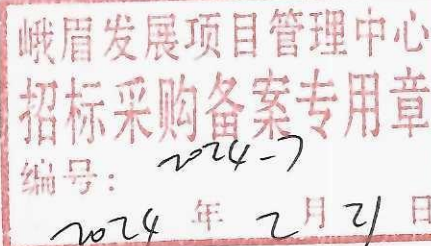 峨眉发展项目管理中心
招标采购备案专用章
编号：2024-7
2024年2月21日